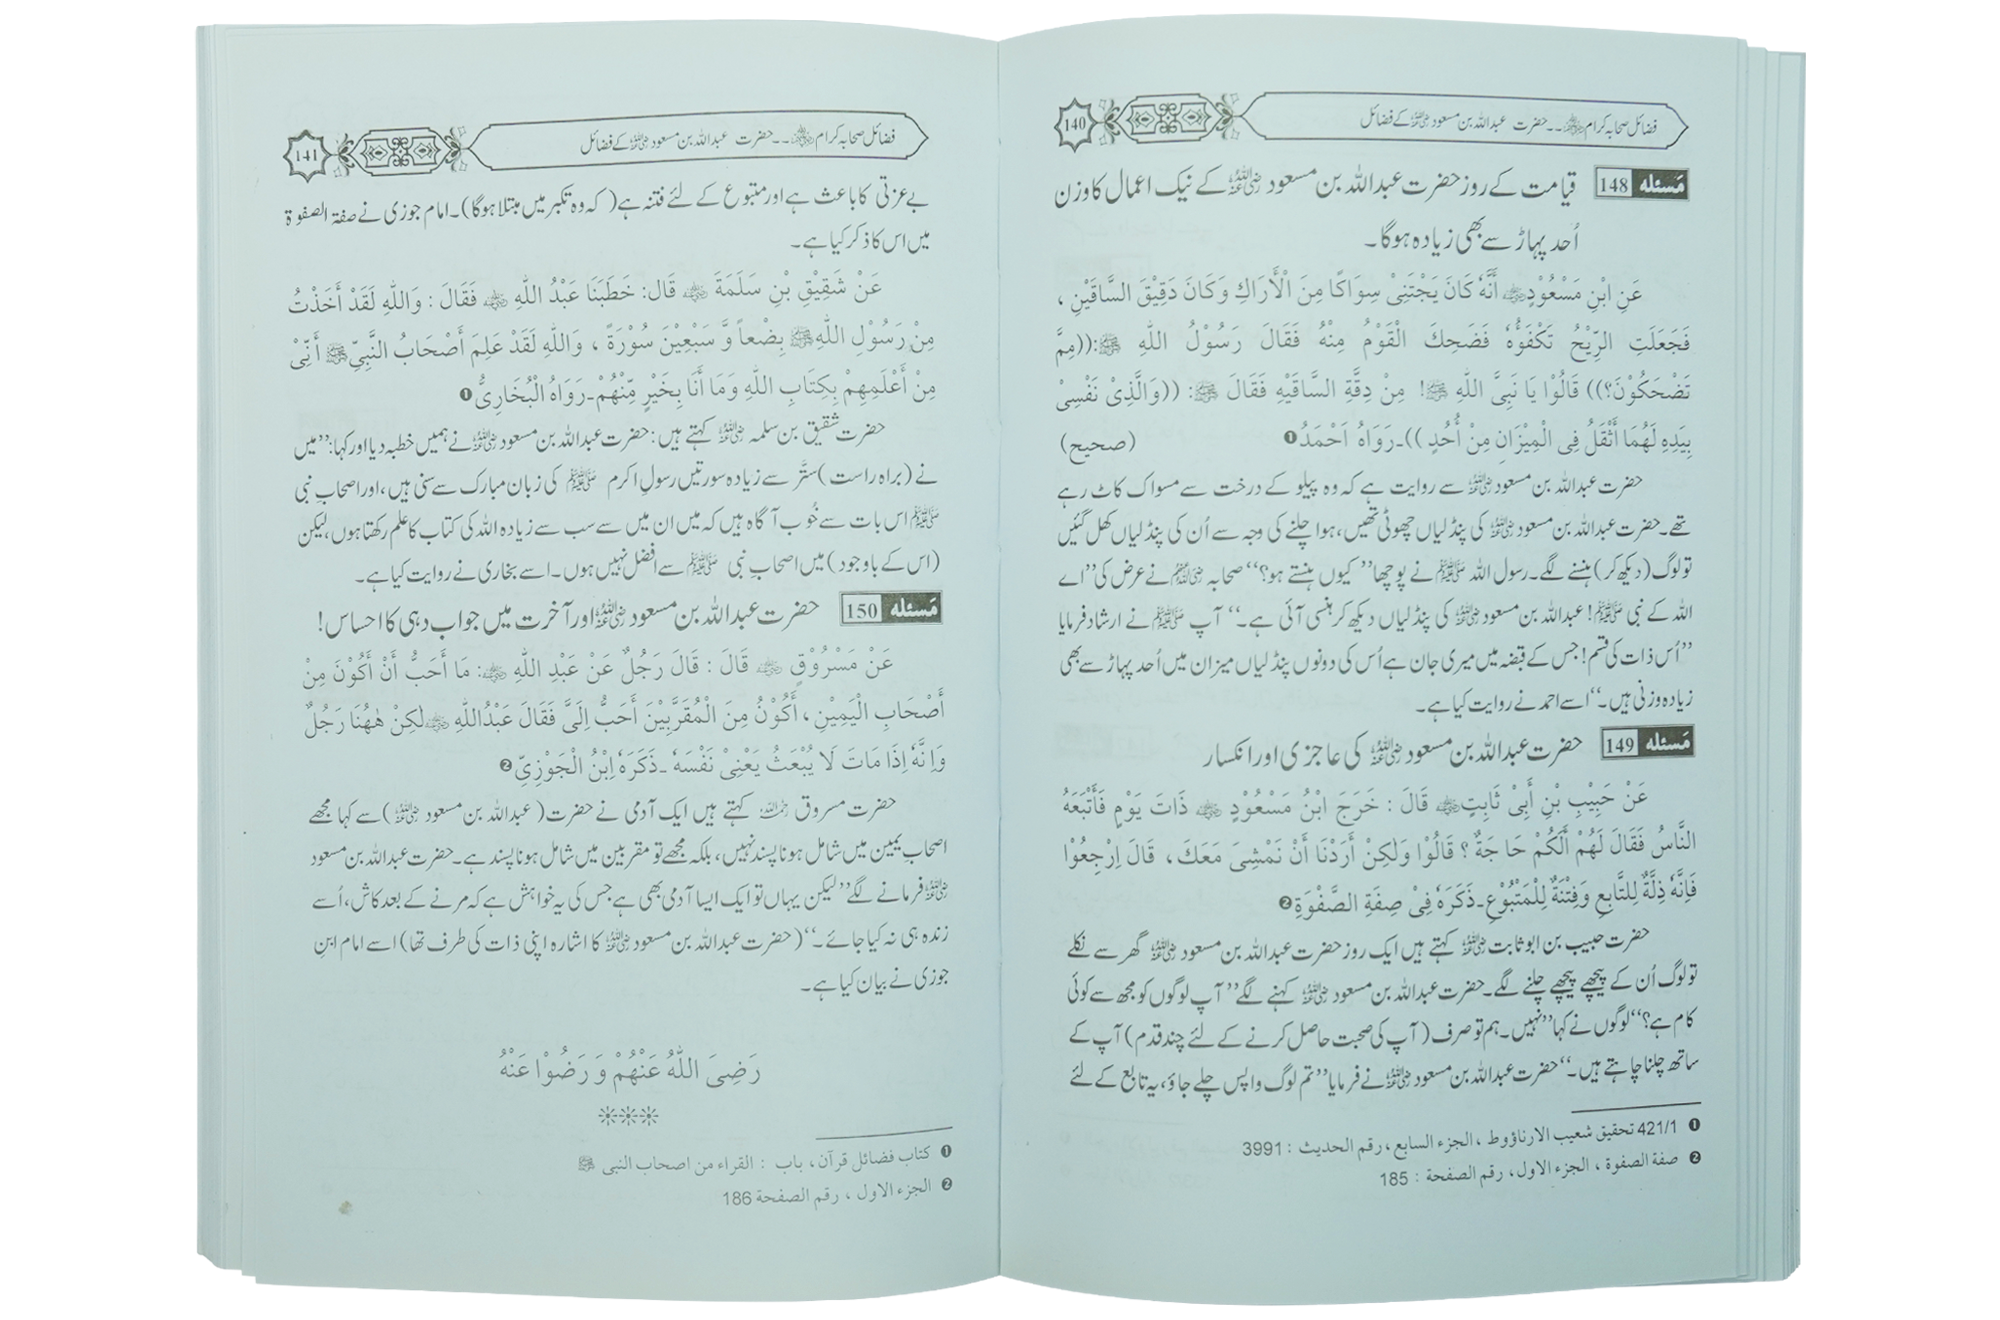 فضائل صحابہ کرام ﷢ ۔۔ حضرت عبداللہ بن مسعود ﷜ کے فضائل
140
مَسئله 148 قیامت کے روز حضرت عبداللہ بن مسعود ﷜ کے نیک اعمال کا وزن
اُحد پہاڑ سے بھی زیادہ ہوگا۔
عَنِ ابْنِ مَسْعُوْدٍ ﷜ أَنَّهٗ كَانَ يَجْتَنِىْ سِوَاكًا مِنَ الْأَرَاكِ وَكَانَ دَقِيْقَ السَّاقَيْنِ ،
فَجَعَلَتِ الرِّيْحُ تَكْفَؤُهٗ فَضَحِكَ الْقَوْمُ مِنْهُ فَقَالَ رَسُوْلُ اللهِ ﷺ :((مِمَّ
تَضْحَكُوْنَ؟)) قَالُوْا يَا نَبِىَّ اللهِ ﷺ! مِنْ دِقَّةِ السَّاقَيْهِ فَقَالَ ﷺ: ((وَالَّذِىْ نَفْسِىْ
بِيَدِهِ لَهُمَا أَثْقَلُ فِى الْمِيْزَانِ مِنْ أُحُدٍ ))۔ رَوَاهُ اَحْمَدُ❶ (صحيح)
حضرت عبداللہ بن مسعود ﷜ سے روایت ہے کہ وہ پیلو کے درخت سے مسواک کاٹ رہے
تھے۔ حضرت عبداللہ بن مسعود ﷜ کی پنڈلیاں چھوٹی تھیں، ہوا چلنے کی وجہ سے اُن کی پنڈلیاں کھل گئیں
تو لوگ (دیکھ کر) ہنسنے لگے۔ رسول اللہ ﷺ نے پوچھا ’’ کیوں ہنستے ہو؟‘‘ صحابہ ﷢ نے عرض کی ’’اے
اللہ کے نبی ﷺ! عبداللہ بن مسعود ﷜ کی پنڈلیاں دیکھ کر ہنسی آئی ہے۔‘‘ آپ ﷺ نے ارشاد فرمایا
’’اُس ذات کی قسم! جس کے قبضہ میں میری جان ہے اُس کی دونوں پنڈلیاں میزان میں اُحد پہاڑ سے بھی
زیادہ وزنی ہیں۔‘‘ اسے احمد نے روایت کیا ہے۔
مَسئله 149 حضرت عبداللہ بن مسعود ﷜ کی عاجزی اور انکسار
عَنْ حَبِيْبِ بْنِ أَبِىْ ثَابِتٍ ﷜ قَالَ : خَرَجَ ابْنُ مَسْعُوْدٍ ﷜ ذَاتَ يَوْمٍ فَأَتْبَعَهُ
النَّاسُ فَقَالَ لَهُمْ أَلَكُمْ حَاجَةٌ ؟ قَالُوْا وَلٰكِنْ أَرَدْنَا أَنْ نَمْشِىَ مَعَكَ ، قَالَ اِرْجِعُوْا
فَاِنَّهٗ ذِلَّةٌ لِلتَّابِعِ وَفِتْنَةٌ لِلْمَتْبُوْعِ۔ ذَكَرَهٗ فِىْ صِفَةِ الصَّفْوَةِ❷
حضرت حبیب بن ابو ثابت ﷜ کہتے ہیں ایک روز حضرت عبداللہ بن مسعود ﷜ گھر سے نکلے
تو لوگ اُن کے پیچھے پیچھے چلنے لگے۔ حضرت عبداللہ بن مسعود ﷜ کہنے لگے ’’ آپ لوگوں کو مجھ سے کوئی
کام ہے؟‘‘ لوگوں نے کہا ’’نہیں۔ ہم تو صرف (آپ کی صحبت حاصل کرنے کے لئے چند قدم) آپ کے
ساتھ چلنا چاہتے ہیں۔‘‘ حضرت عبداللہ بن مسعود ﷜ نے فرمایا ’’ تم لوگ واپس چلے جاؤ، یہ تابع کے لئے
❶ 421/1 تحقیق شعیب الارناؤوط ، الجزء السابع ، رقم الحدیث : 3991
❷ صفة الصفوة ، الجزء الاول ، رقم الصفحة : 185
فضائل صحابہ کرام ﷢ ۔۔ حضرت عبداللہ بن مسعود ﷜ کے فضائل
141
بے عزتی کا باعث ہے اور متبوع کے لئے فتنہ ہے (کہ وہ تکبر میں مبتلا ہوگا)۔ امام جوزی نے صفة الصفوة
میں اس کا ذکر کیا ہے۔
عَنْ شَقِيْقِ بْنِ سَلَمَةَ ﷜ قَالَ: خَطَبَنَا عَبْدُ اللهِ ﷜ فَقَالَ : وَاللهِ لَقَدْ أَخَذْتُ
مِنْ رَسُوْلِ اللهِ ﷺ بِضْعاً وَّ سَبْعِيْنَ سُوْرَةً ، وَاللهِ لَقَدْ عَلِمَ أَصْحَابُ النَّبِيِّ ﷺ أَنِّىْ
مِنْ أَعْلَمِهِمْ بِكِتَابِ اللهِ وَمَا أَنَا بِخَيْرٍ مِّنْهُمْ۔ رَوَاهُ الْبُخَارِىُّ❶
حضرت شقیق بن سلمہ ﷜ کہتے ہیں: حضرت عبداللہ بن مسعود ﷜ نے ہمیں خطبہ دیا اور کہا: ’’میں
نے (براہ راست) ستّر سے زیادہ سورتیں رسول اکرم ﷺ کی زبان مبارک سے سنی ہیں، اور اصحابِ نبی
ﷺ اس بات سے خُوب آگاہ ہیں کہ میں ان میں سے سب سے زیادہ اللہ کی کتاب کا علم رکھتا ہوں، لیکن
(اس کے باوجود) میں اصحابِ نبی ﷺ سے افضل نہیں ہوں۔ اسے بخاری نے روایت کیا ہے۔
مَسئله 150 حضرت عبداللہ بن مسعود ﷜ اور آخرت میں جواب دہی کا احساس!
عَنْ مَسْرُوْقٍ ﷫ قَالَ : قَالَ رَجُلٌ عَنْ عَبْدِ اللهِ ﷜: مَا أَحَبُّ أَنْ أَكُوْنَ مِنْ
أَصْحَابِ الْيَمِيْنِ ، أَكُوْنُ مِنَ الْمُقَرَّبِيْنَ أَحَبُّ اِلَىَّ فَقَالَ عَبْدُ اللهِ ﷜ لٰكِنْ هٰهُنَا رَجُلٌ
وَاِنَّهٗ اِذَا مَاتَ لَا يُبْعَثُ يَعْنِىْ نَفْسَهٗ ۔ ذَكَرَهٗ اِبْنُ الْجَوْزِىِّ❷
حضرت مسروق ﷫ کہتے ہیں ایک آدمی نے حضرت (عبداللہ بن مسعود ﷜) سے کہا مجھے
اصحابِ یمین میں شامل ہونا پسند نہیں، بلکہ مجھے تو مقربین میں شامل ہونا پسند ہے۔ حضرت عبداللہ بن مسعود
﷜ فرمانے لگے ’’ لیکن یہاں تو ایک ایسا آدمی بھی ہے جس کی یہ خواہش ہے کہ مرنے کے بعد کاش، اُسے
زندہ ہی نہ کیا جائے۔‘‘ (حضرت عبداللہ بن مسعود ﷜ کا اشارہ اپنی ذات کی طرف تھا) اسے امام ابنِ
جوزی نے بیان کیا ہے۔
رَضِىَ اللّٰهُ عَنْهُمْ وَ رَضُوْا عَنْهُ
❊❊❊
❶ کتاب فضائل قرآن ، باب : القراء من اصحاب النبی ﷺ
❷ الجزء الاول ، رقم الصفحة 186